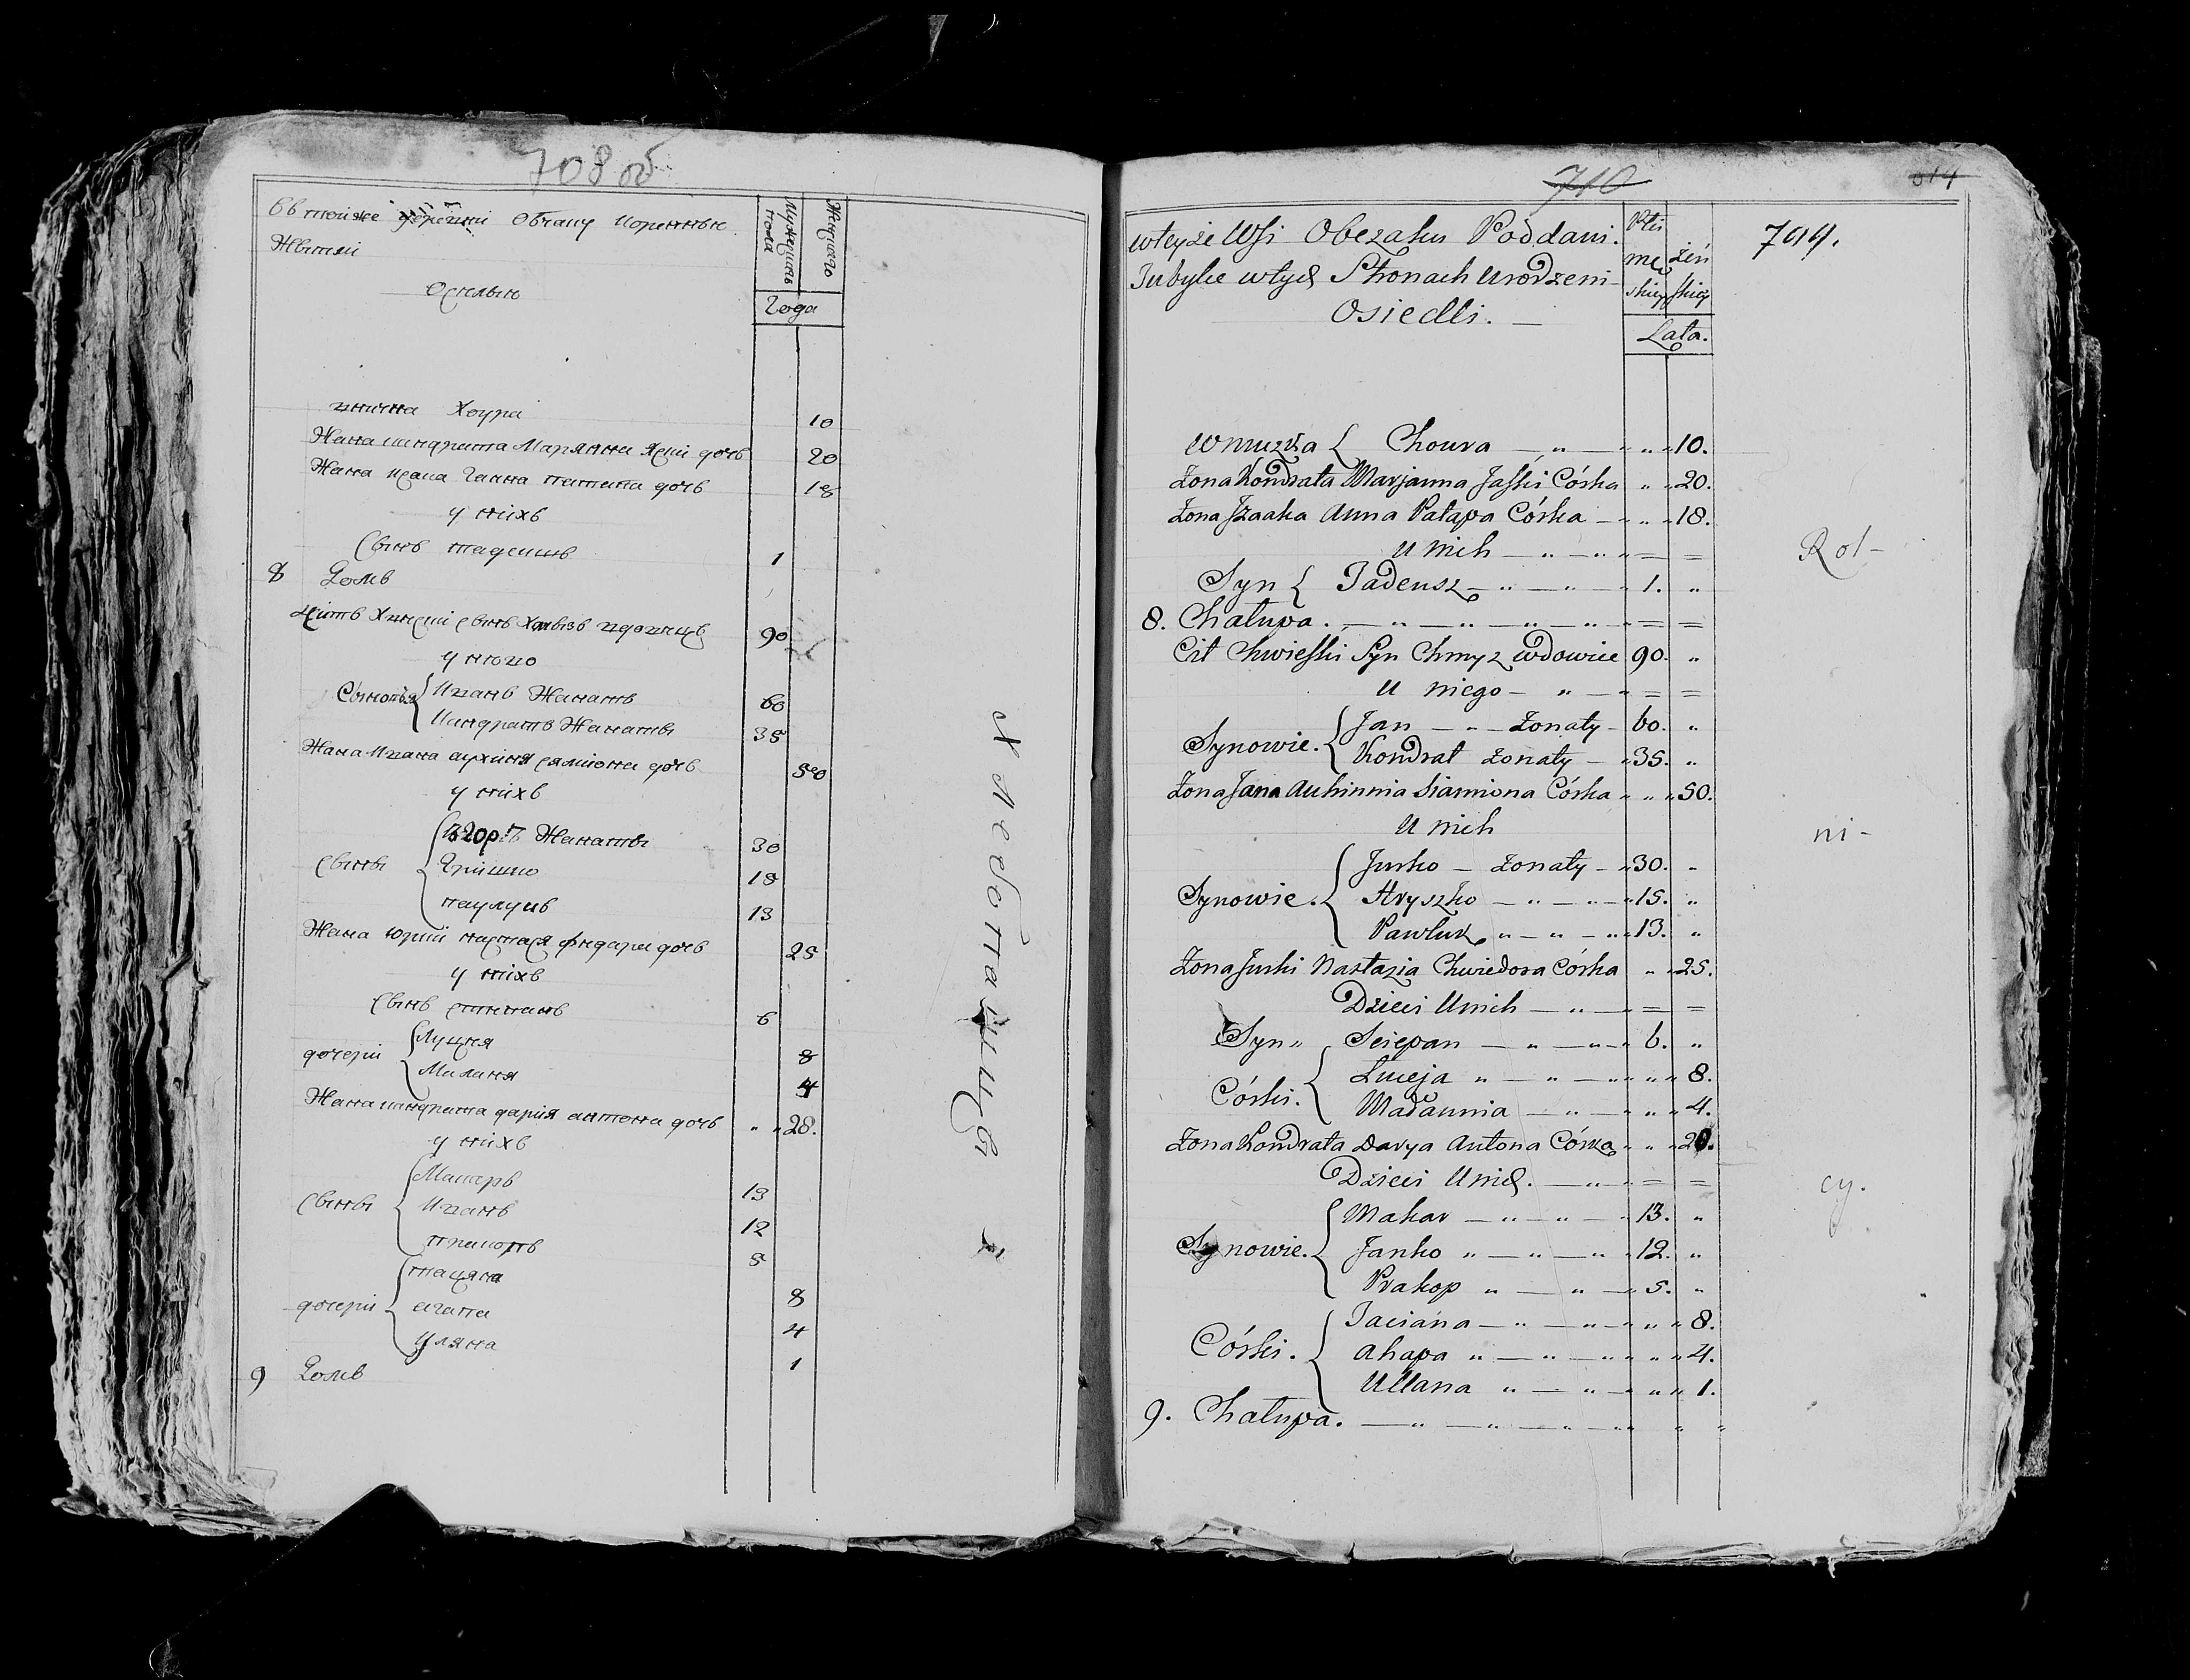 708 об
въ тойже деревни Обчаку Коренные
Жители
Оселые
Мужескаго пола
Женскаго
Года
внучка Хоура 10
Жана киндрата Марянна Яськи дочь 20
Жана исака Ганна патапа дочь 18
у нихъ
сынъ тадеушъ 1
8 Домъ
у ного 
Сыновья Иванъ Жанатъ 60
Киндратъ Жанаты 35
Жана Ивана аухиня сямiона дочь 50
у нихъ
сыны Жанаты 30
Гришко 15
паулукъ 13
Жана юрки дочь 25
у нихъ
сынъ 6
дочери Луцея 8
4
Жана киндрата дарія антона дочь " " 28.
у нихъ
сыны Макаръ 13
Иванъ 12
пракопъ 5
дочери тацяна 8
агапа 4
уляна 1
9 Домъ
Хлебопашцы
710
614
709.
wteyże Wsi Obczaku Poddani.
Tubylce wtych Stronach urodzeni
Osiedli.
Płci
męskiey
żeńskiey
Lata.
Wnuczka { Choura — " — " " " 10.
Zona Kondrata Marjanna Jaśki Córka " " 20.
Zona Jzaaka Anna Patapa Córka — " " " 18.
U nich — " — " " = =
Syn { Tadeusz — " — " — " 1. "
8. Chałupa. — " — " — " — " = =
Cit Chwieśki Syn Chmyz wdowiec 90. "
U niego — " — " = =
Synowie. { Jan — " — Zonaty — 60. "
Kondrat Zonaty — " 35. "
Zona Jana Auhinnia Siamiona Córka " " " 50.
U nich
Synowie. { Jurko — Zonaty — " 30. "
Hryszko — " — " — " 15. "
Pawluk " — " — " " 13. "
Zona Jurki Nastazia Chwiedora Córka " " 25.
Dzieci U nich — " — " = =
Syn " Sciepan — " — " — " 6. "
Córki. { Luceja " — " — " " " " 8.
Małannia — " — " " " 4.
Zona Kondrata Darya Antona Córka " " " 28.
Dzieci U nich. — " — " = =
Synowie. { Makar — " — " — " 13. "
Janko " — " — " " 12. "
Prakop " — " — " 5. "
Córki. { Taciana — " — " — " " " 8.
Ahapa " — " — " " " " 4.
Ullana " — " — " " " 1.
9. Chałupa. — " — " — " — " " " "
Rol-
ni-
cy.